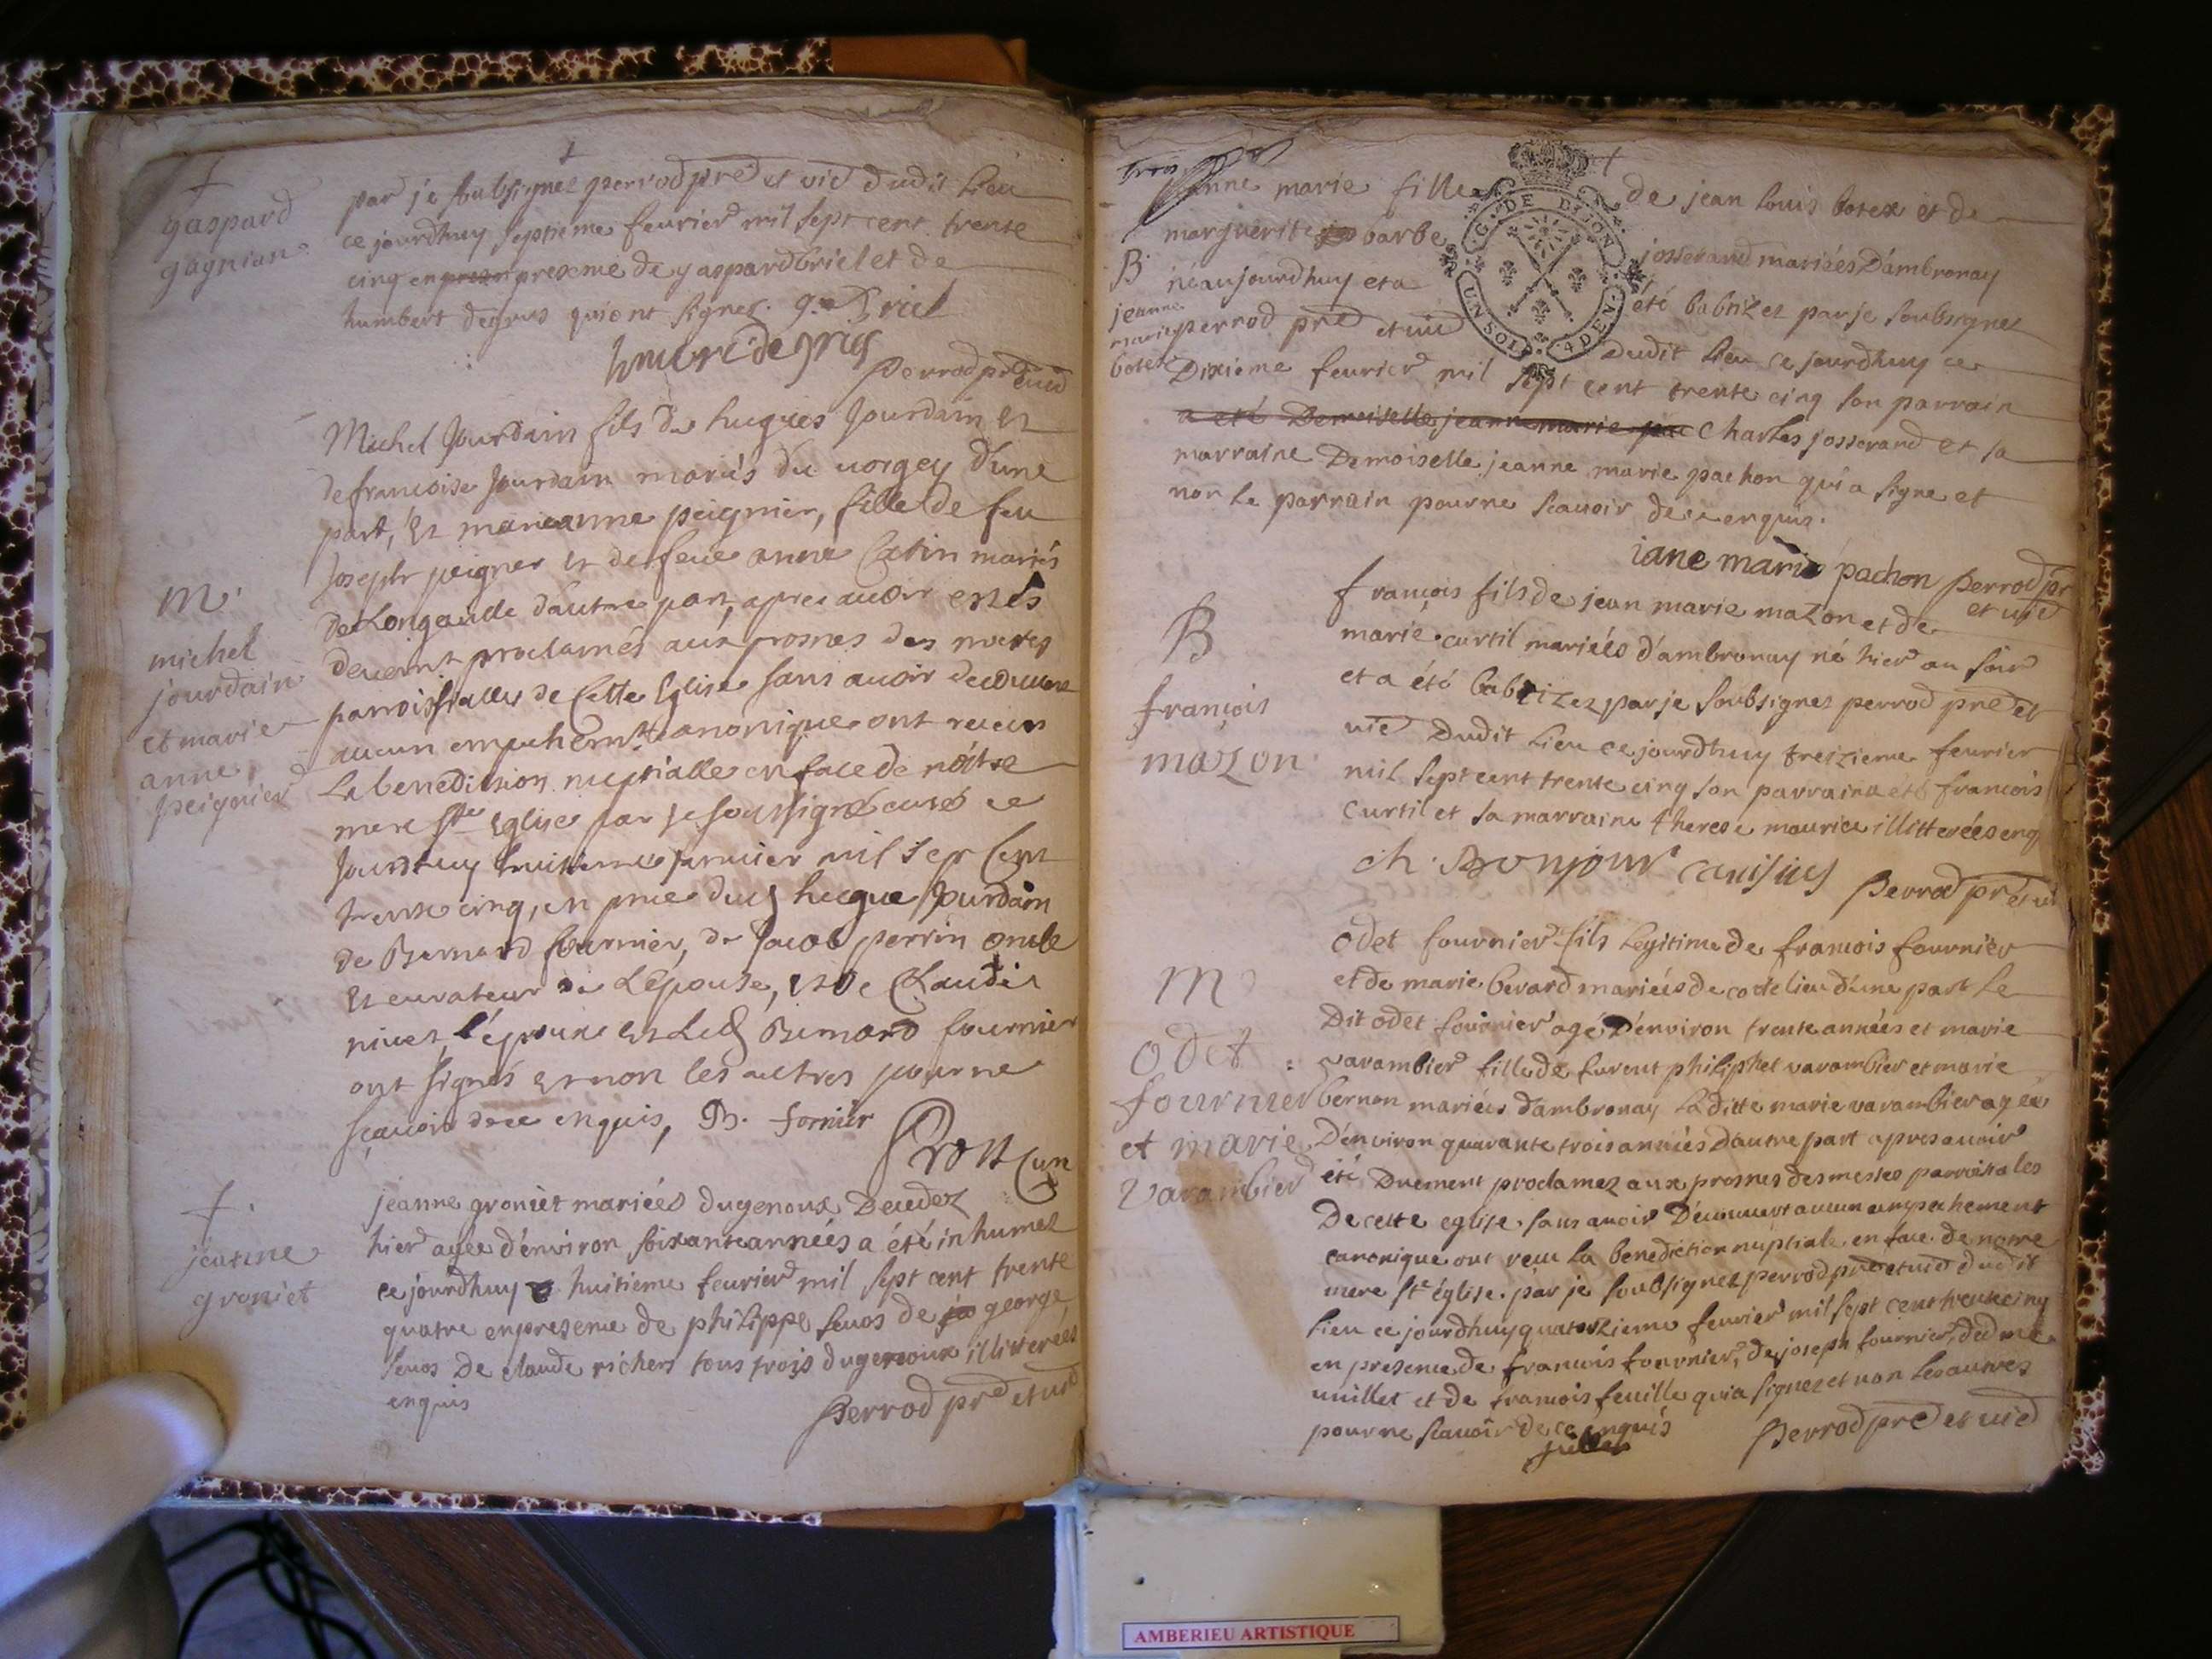 gaspard
gagnian
par je soubsignez perrod pre et vic dudit lieu
ce jourdhuy septieme feurier mil sept cent trente
cinq en presence de gaspard briel et de
humbert degrus qui ont signez. g. Briel
humbert degrus
perrod pre et vic
m.
michel
jourdain
et marie
anne
peignier
Michel Jourdain fils de hugues Jourdain et
de francoise Jourdain mariés du uorgey d'une
part, et marieanne peignier, fille de feu
Joseph peignier et de feue anne Catin mariés
de Longeuille d'autre part, apres auoir estés
deuemt proclamés aux prosnes des messes
parroissialles de cette Eglise sans auoir decouuert
aucun empechemt canonique ont receu
La benediction nuptialle en face de nôtre
mere ste Eglise par je soussigné curé ce
Jourdhuy huitieme januier mil sept cent
trente cinq, en pnce dud hugue Jourdain
de Bernard fournier, de Jacob perrin oncle
et curateur de L'épouse, et de Claude
niuet, l'épouse et Led Bernard fournier
ont signés et non les autres pour ne
sçauoir de ce enquis, B. fornier
Prost Curé
f.
jeanne
groniet
jeanne groniet mariées dugenoux Decedez
hier agee d'environ soixante années a été inhumez
ce jourdhuy huitieme feurier mil sept cent trente
quatre en presence de philippe seuos de george
seuos De claude richers tous trois dugenoux illitterées
enquis
Perrod pre et vic
anne marie fille de jean louis botex et de
marguerite barbe josserand mariées D'ambronay
B
jeanne
marie
botex
né aujourdhuy et a été babtizez par je soubsignez
perrod pre et vic Dudit lieu ce jourdhuy ce
Dixieme feurier mil sept cent trente cinq son parrain
a eté Demoiselle jeanne marie pa Charles josserand et sa
marraine Demoiselle jeanne marie pachon qui a signe et
non le parrain pour ne scauoir de ce enquis.
iane marie pachon Perrod pr
et vic
B
françois
mazon
françois fils de jean marie mazon et de
marie curtil mariées d'ambronay né hier au soir
et a été babtizez par je soubsignez perrod pre et
vic Dudit lieu ce jourdhuy treizieme feurier
mil sept cent trente cinq son parrain a eté francois
Curtil et sa marraine therese maurice illitterées enq
ch. Bonjour
Perrod pre et vi
m
odet
fournier
et marie
Varambier
odet fournier fils legitime de francois fournier
et de marie berard mariées de ce dit lieu d'une part Le
Dit odet fournier agé D'environ trente années et marie
varambier fille de furent philiphet varambier et marie
bernon mariées d'ambronay La ditte marie varambier agée
D'environ quarante trois années d'autre part apres auoir
été Duement proclamez aux prosnes des messes parroisiales
De cette eglise sans auoir Découuert aucun empechement
canonique ont recu la benediction nuptiale en face de notre
mere ste église par je soubsignez perrod pre et vic dudit
lieu ce jourdhuy quatorzieme feurier mil sept cent trente cinq
en presence de francois fournier, de joseph fournier, de
uuillet et de francois feuille qui a signez et non les autres
pour ne scauoir de ce enquis
Perrod pre et vic
G. DE DIJON
UN SOL 4 DEN.
AMBERIEU ARTISTIQUE